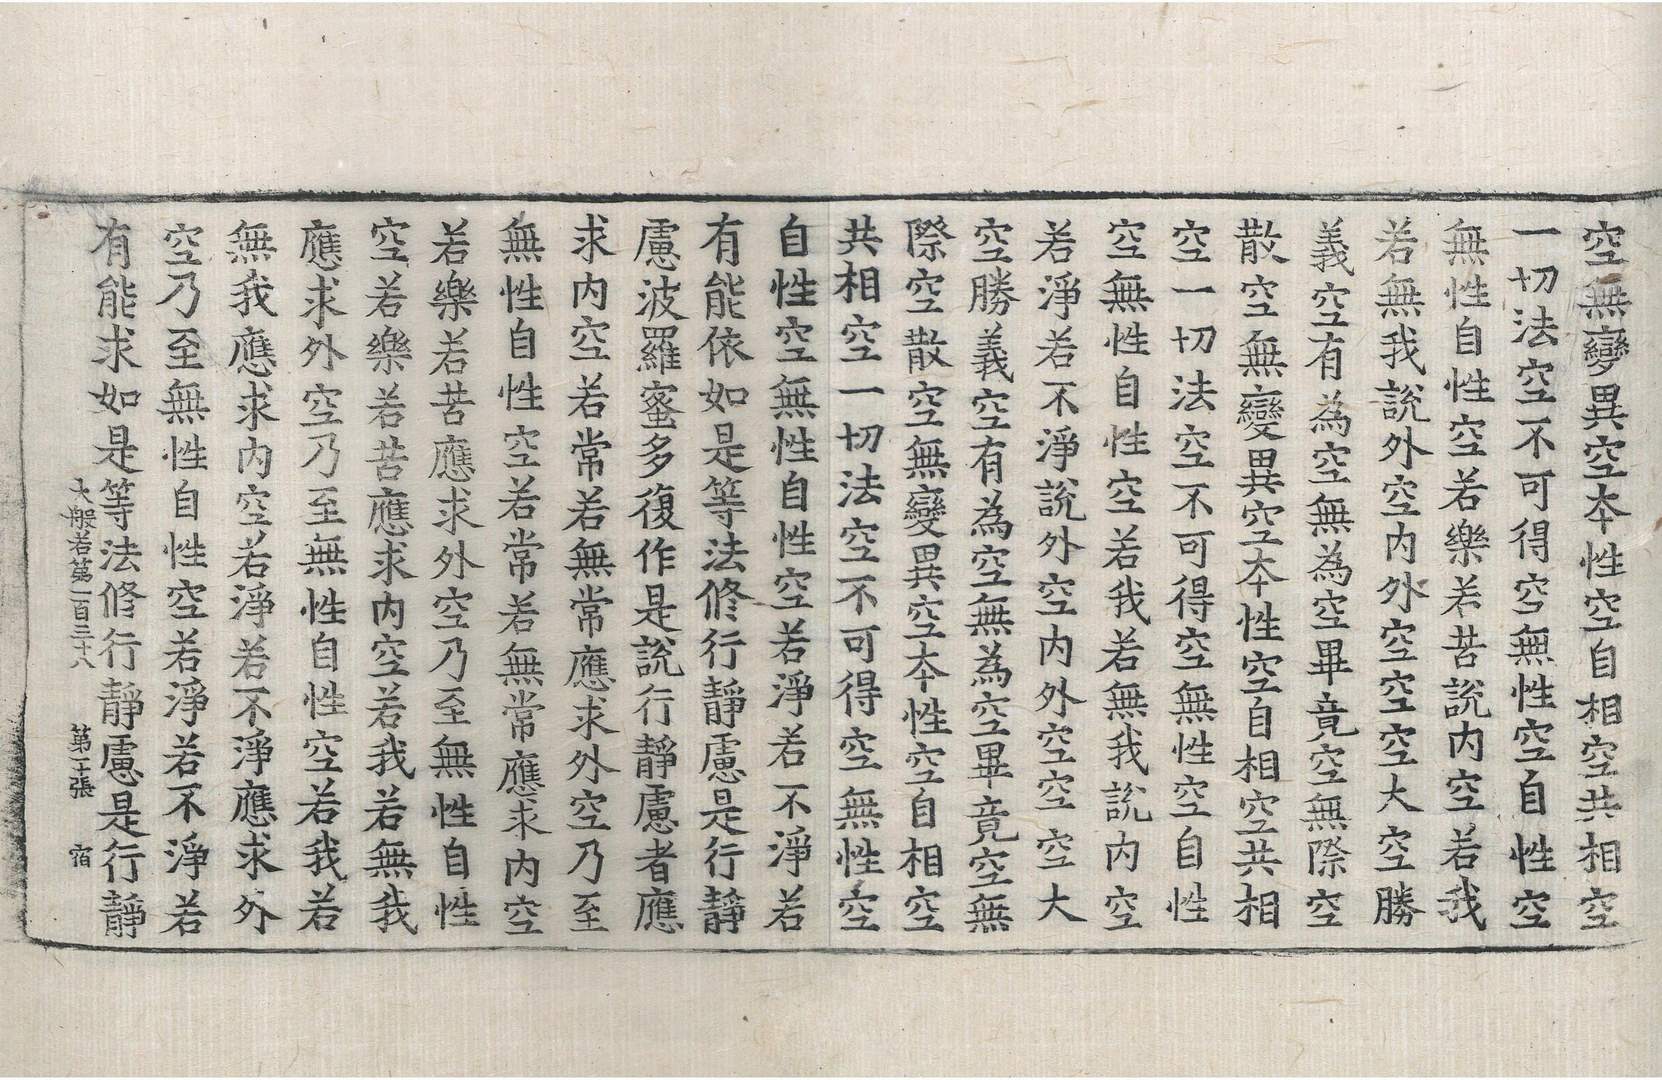 空無變異空本性空自相空共相空
一切法空不可得空無性空自性空
無性自性空若樂若苦說內空若我
若無我說外空內外空空空大空勝
義空有為空無為空畢竟空無際空
散空無變異空本性空自相空共相
空一切法空不可得空無性空自性
空無性自性空若我若無我說內空
若淨若不淨說外空內外空空空大
空勝義空有為空無為空畢竟空無
際空散空無變異空本性空自相空
共相空一切法空不可得空無性空
自性空無性自性空若淨若不淨若
有能依如是等法修行靜慮是行靜
慮波羅蜜多復作是說行靜慮者應
求內空若常若無常應求外空乃至
無性自性空若常若無常應求內空
若樂若苦應求外空乃至無性自性
空若樂若苦應求內空若我若無我
應求外空乃至無性自性空若我若
無我應求內空若淨若不淨應求外
空乃至無性自性空若淨若不淨若
有能求如是等法修行靜慮是行靜
大般若第一百三十八 第張 宿